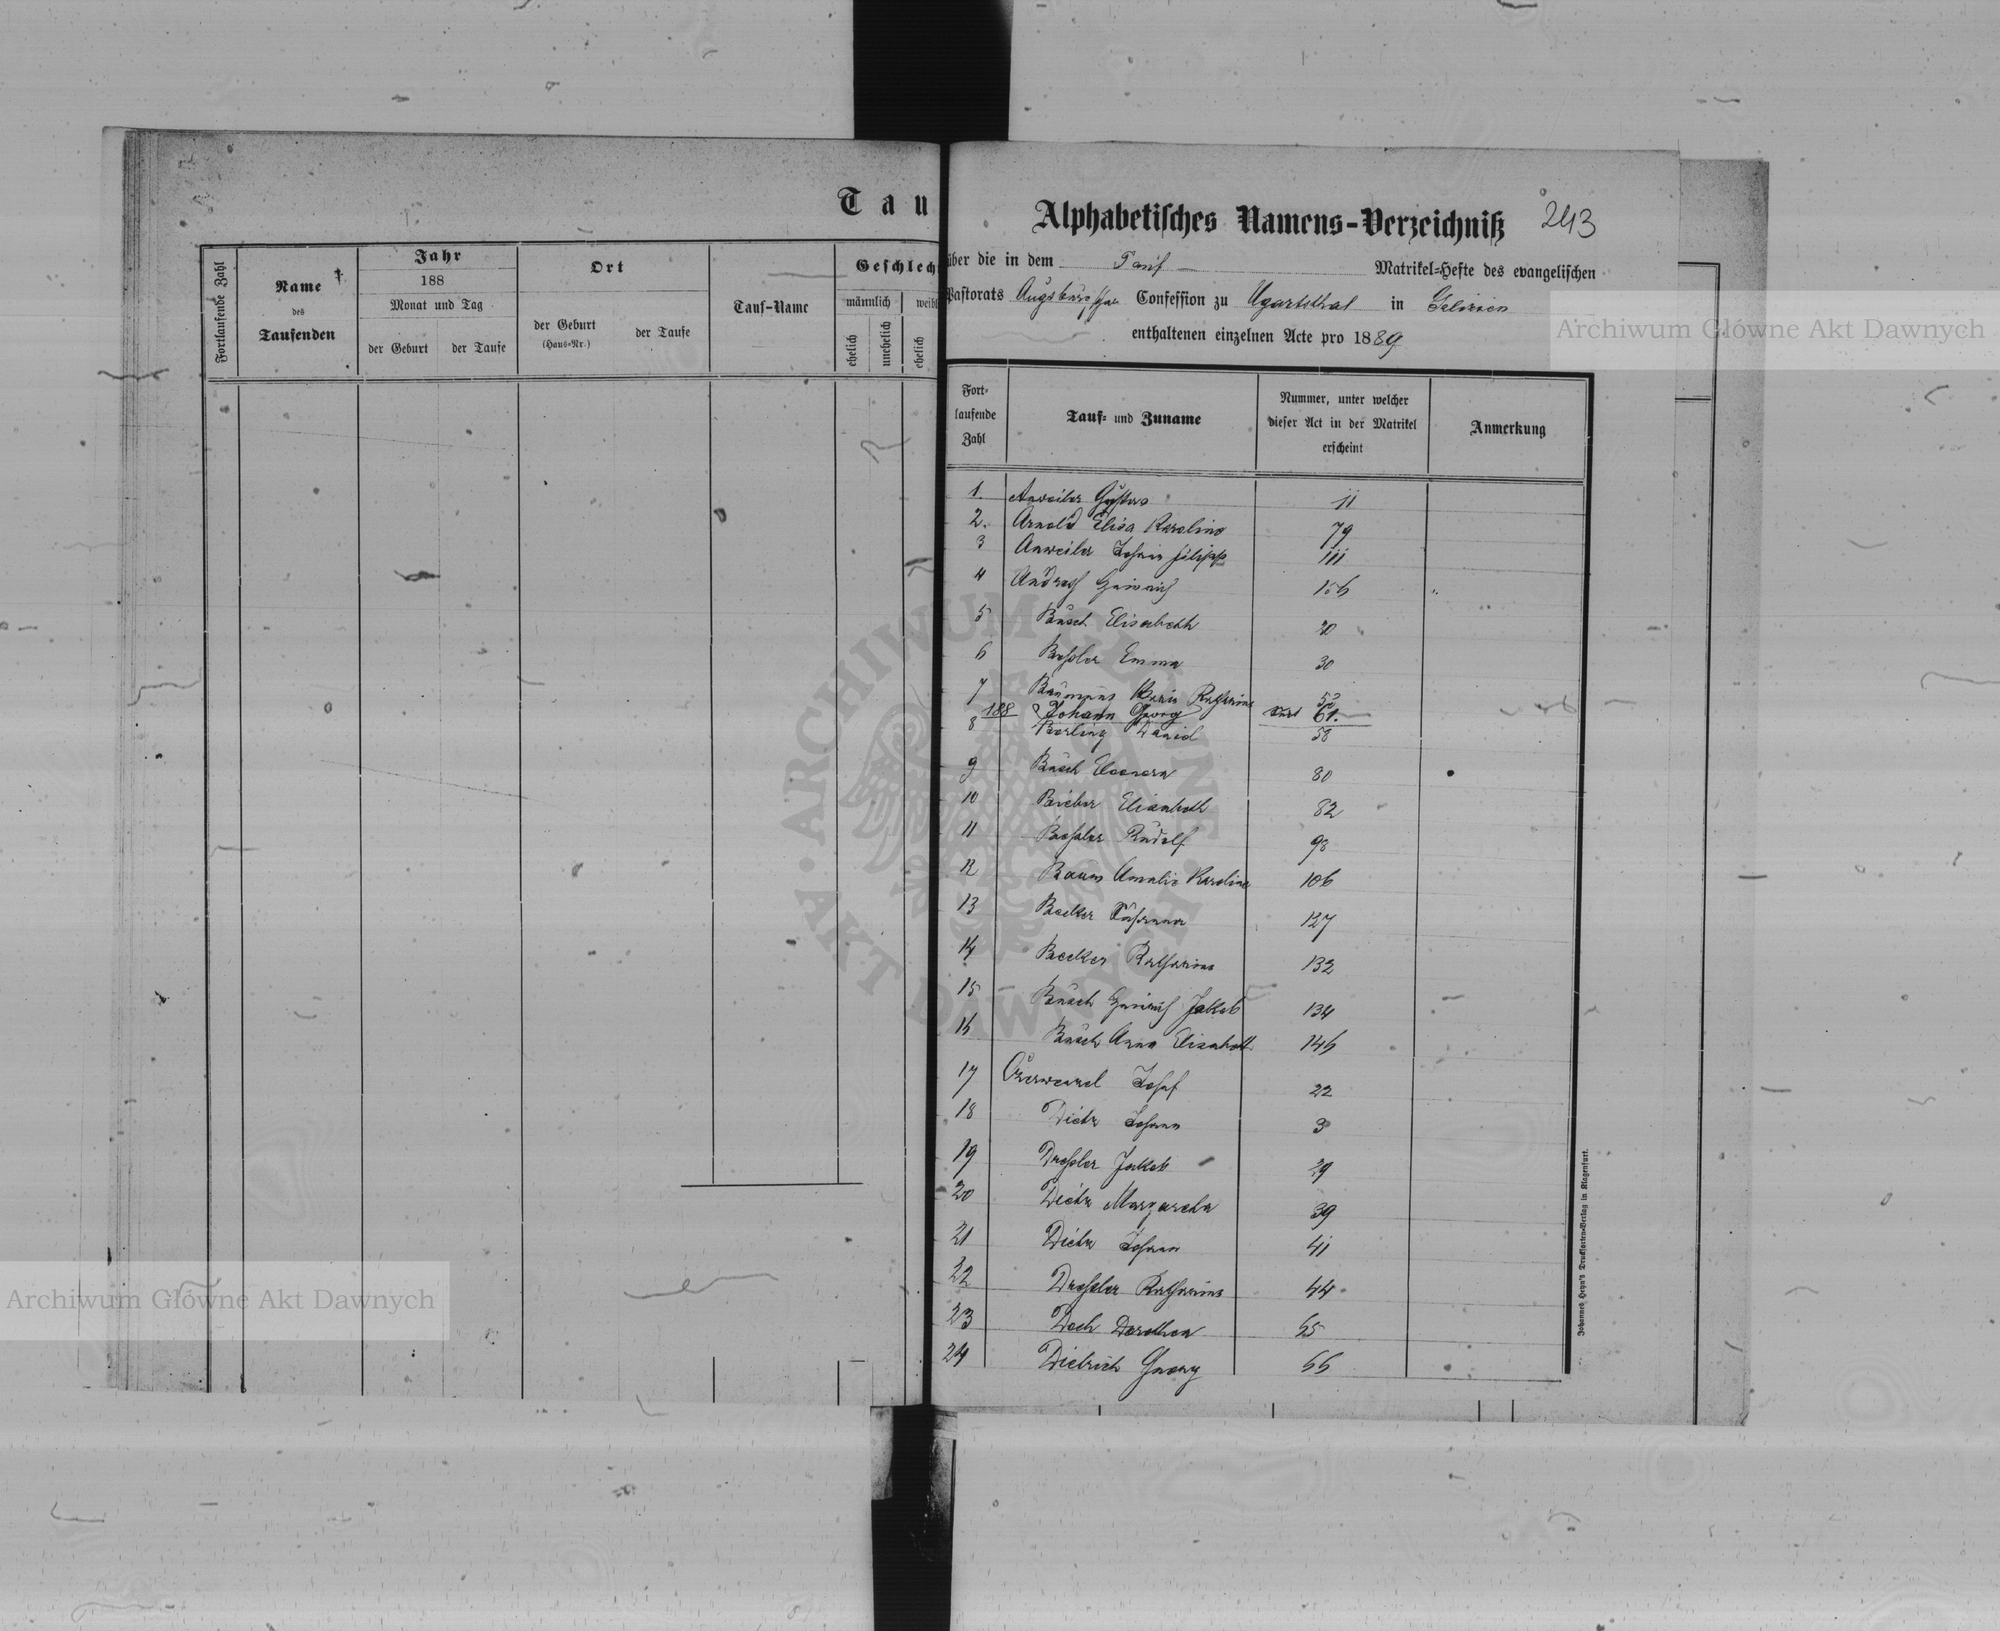 Tau
Fortlaufende Zahl
Name
des
Taufenden
Jahr
188
Monat und Tag
der Geburt
der Taufe
Ort
der Geburt
(Haus-Nr.)
der Taufe
Tauf-Name
Geschlech
männlich
weibl
ehelich
unehelich
ehelich
Alphabetisches Namens-Verzeichniß 243
über die in dem Tauf Matrikel-Hefte des evangelischen
Pastorats Augsburgscher Confession zu Ugartsthal in Galizien
enthaltenen einzelnen Acte pro 1889
Fort-
laufende
Zahl
Tauf- und Zuname
Nummer, unter welcher
dieser Act in der Matrikel
erscheint
Anmerkung
1. Anweiler Gustav 11
2. Arnold Elisa Karolina 79
3 Anweiler Johann Filipp 111
4 Heinrich 156
5 Busch Elisabeth 20
6 Bessler Emma 30
7 Baumann Maria Katharina 52
188 Johann Georg 61.
8 David 58
9 Busch Eleonora 80
10 Bieber Elisabeth 82
11 Bessler Rudolf 98
12 Baum Amalie Karolina 106
13 Becker Susanna 127
14 Becker Katharina 132
15 Busch Heinrich Jakob 134
16 Busch Anna Elisabeth 146
17 Josef 22
18 Dietz Johann 3
19 Dressler Jakob 29
20 Dietz Margaretha 39
21 Dietz Johann 41
22 Dressler Katharina 44
23 Doch Dorothea 65
24 Dietrich Georg 66
Johannes Heyn's Drucksorten-Verlag in Klagenfurt.
Archiwum Główne Akt Dawnych
Archiwum Główne Akt Dawnych